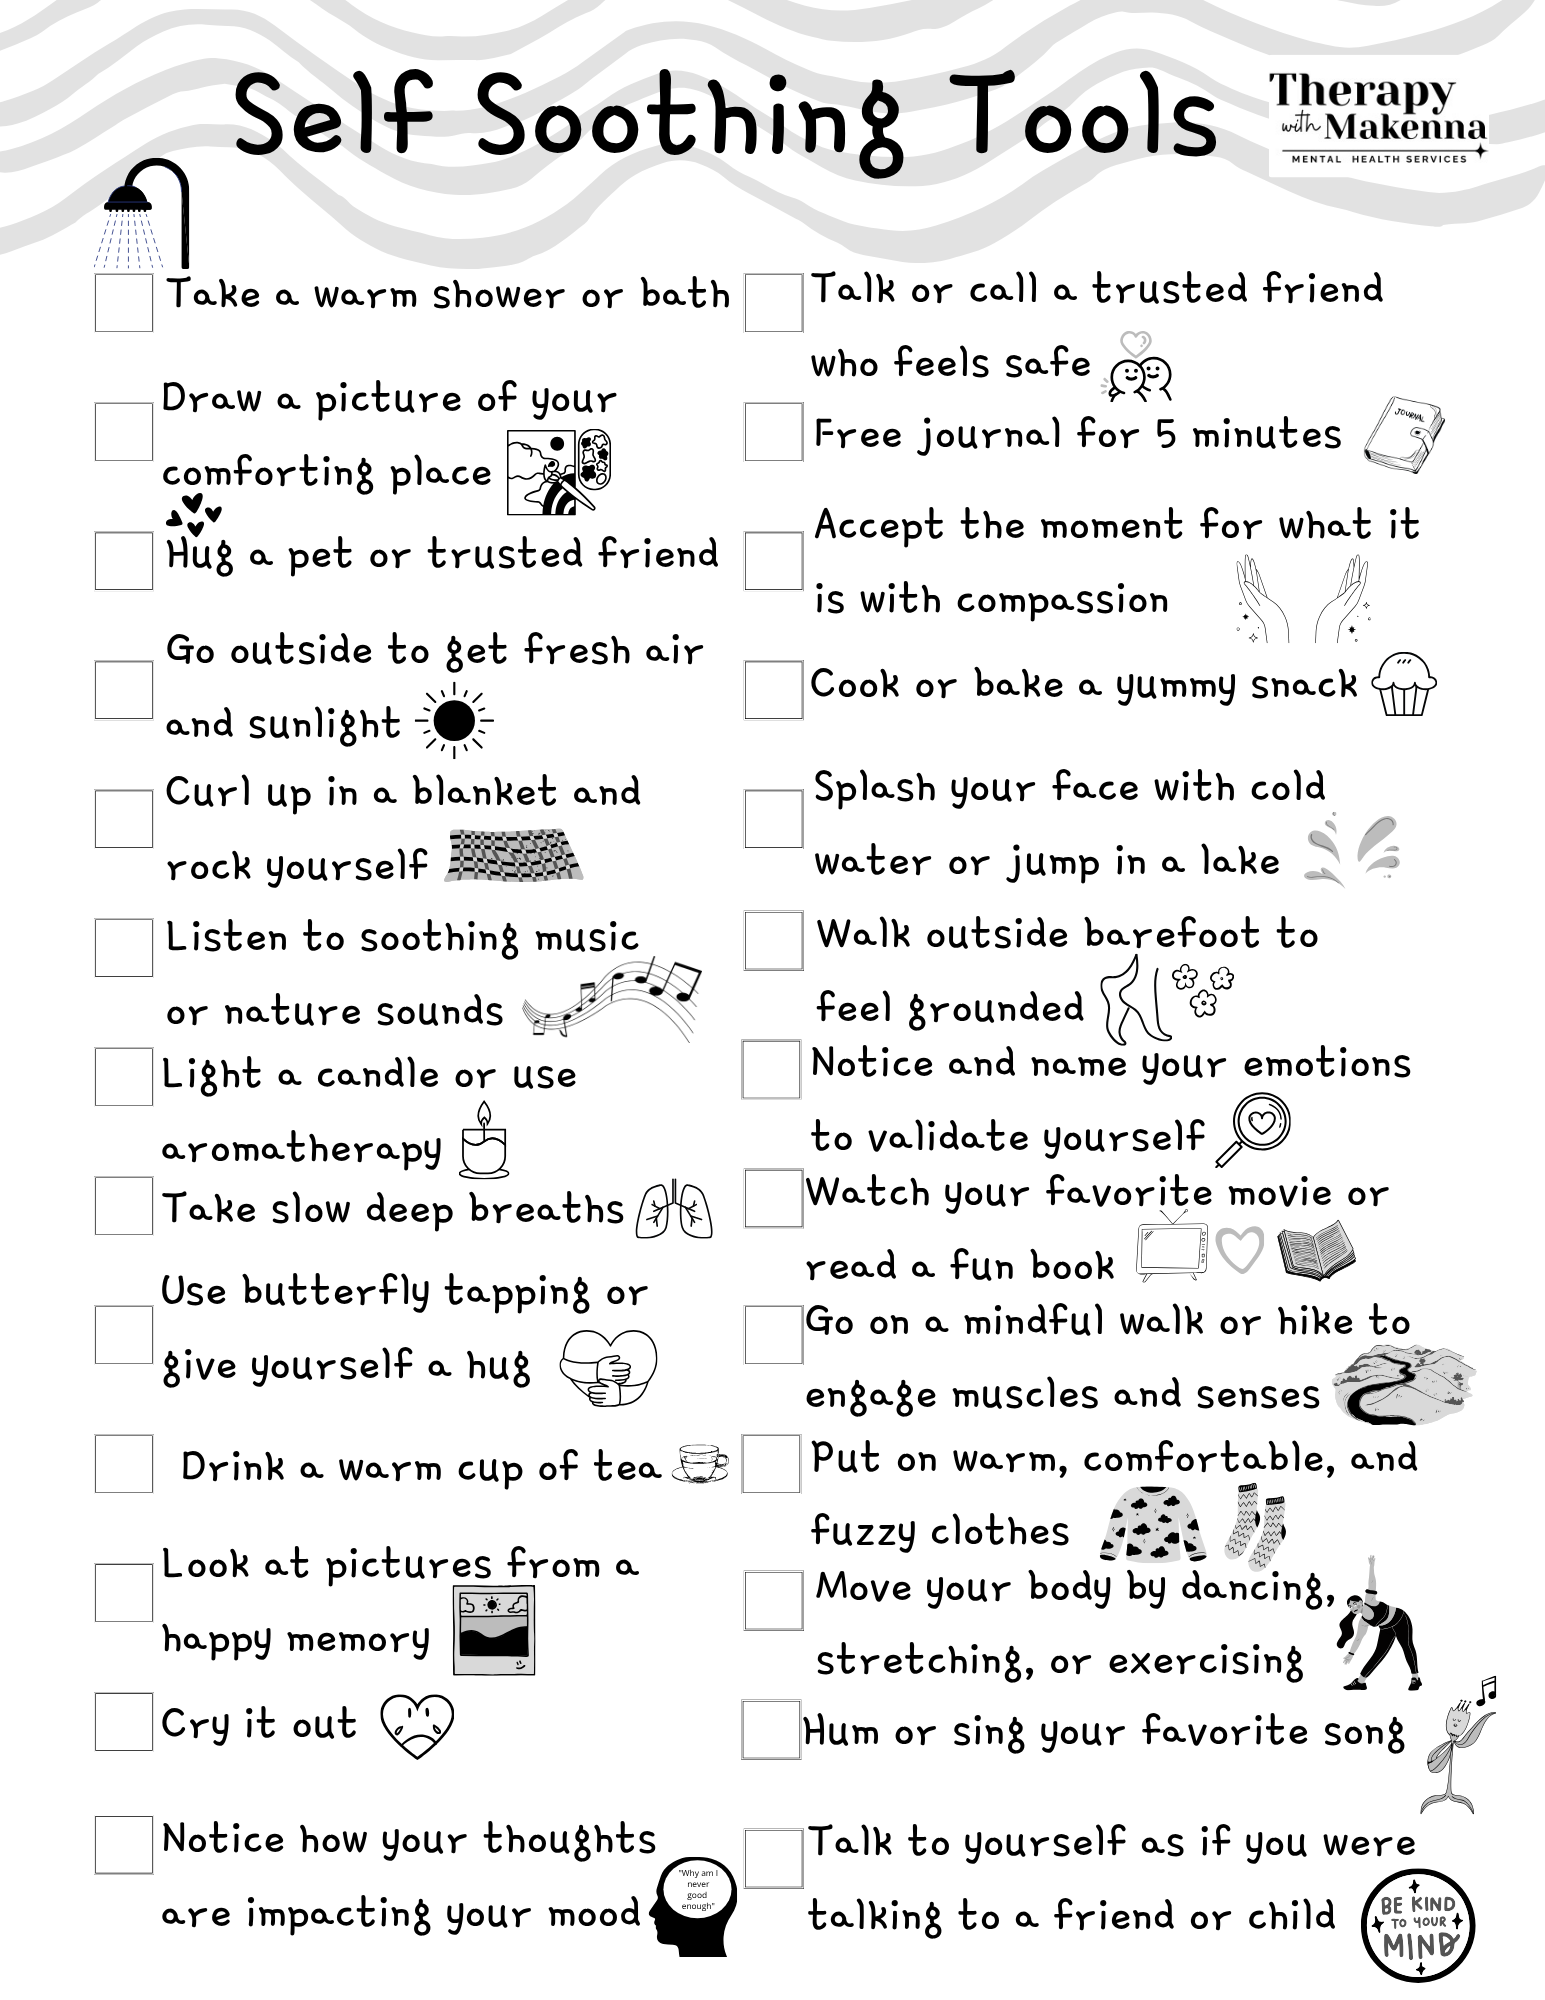 Self Soothing Tools
Therapy
with Makenna
MENTAL HEALTH SERVICES
Take a warm shower or bath
Draw a picture of your
comforting place
Hug a pet or trusted friend
Go outside to get fresh air
and sunlight
Curl up in a blanket and
rock yourself
Listen to soothing music
or nature sounds
Light a candle or use
aromatherapy
Take slow deep breaths
Use butterfly tapping or
give yourself a hug
Drink a warm cup of tea
Look at pictures from a
happy memory
Cry it out
Notice how your thoughts
are impacting your mood
"Why am I
never
good
enough"
Talk or call a trusted friend
who feels safe
Free journal for 5 minutes
JOURNAL
Accept the moment for what it
is with compassion
Cook or bake a yummy snack
Splash your face with cold
water or jump in a lake
Walk outside barefoot to
feel grounded
Notice and name your emotions
to validate yourself
Watch your favorite movie or
read a fun book
Go on a mindful walk or hike to
engage muscles and senses
Put on warm, comfortable, and
fuzzy clothes
Move your body by dancing,
stretching, or exercising
Hum or sing your favorite song
Talk to yourself as if you were
talking to a friend or child
BE KIND
TO YOUR
MIND